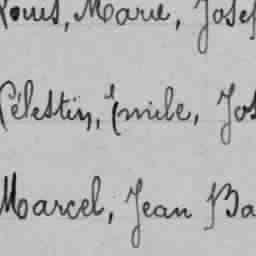 Louis, Marie, Josep
Célestin, Émile, Jos
Marcel, Jean Ba